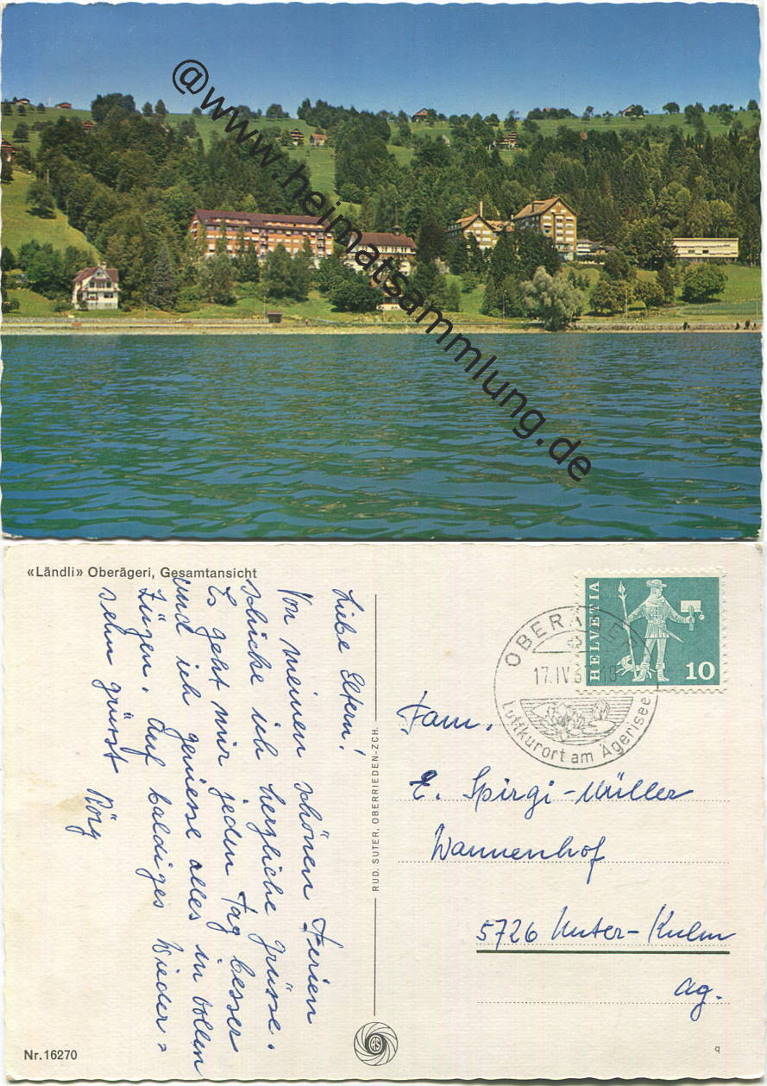 @www.heimatsammlung.de
«Ländli» Oberägeri, Gesamtansicht
Liebe Eltern!
Von meinen schönen Ferien
schicke ich herzliche Grüsse.
Es geht mir jeden Tag besser
und ich geniesse alles in vollen
Zügen. Auf baldiges Wieder=
sehn grüsst Rörg
RUD. SUTER, OBERRIEDEN-ZCH.
HELVETIA
10
OBERÄGERI
17.IV.6
Luftkurort am Ägerisee
Fam.
E. Spirgi-Müller
Wannenhof
5726 Unter-Kulm
Ag.
Nr. 16270
q